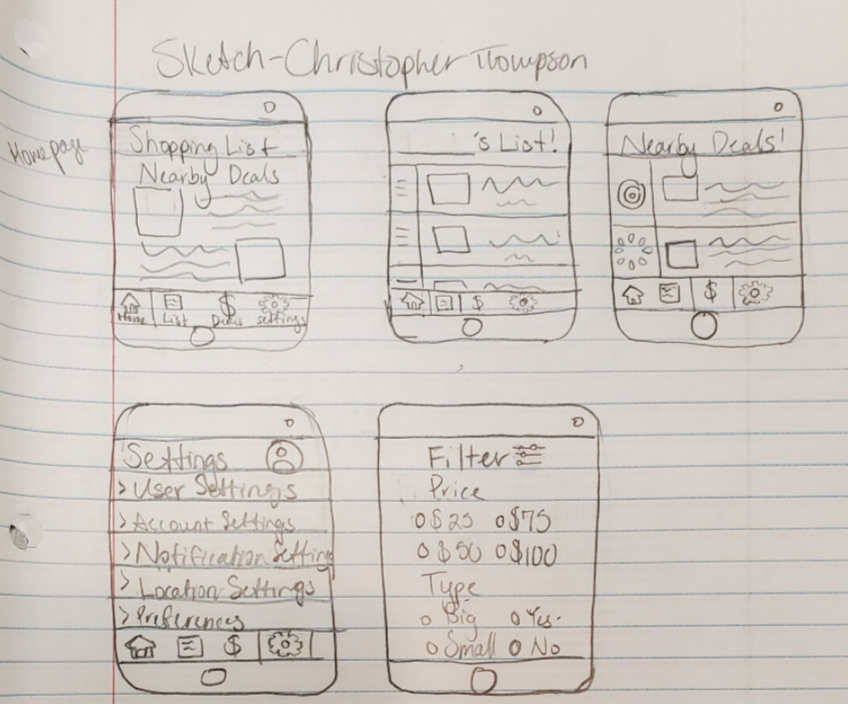 Sketch-Christopher Thompson
Homepage
Shopping List
Nearby Deals
Home List Deals settings
's List!
$
Nearby Deals!
$
Settings
> User Settings
> Account Settings
> Notification Setting
> Location Settings
> Preferences
$
Filter
Price
$25 $75
$50 $100
Type
Big Yes
Small No